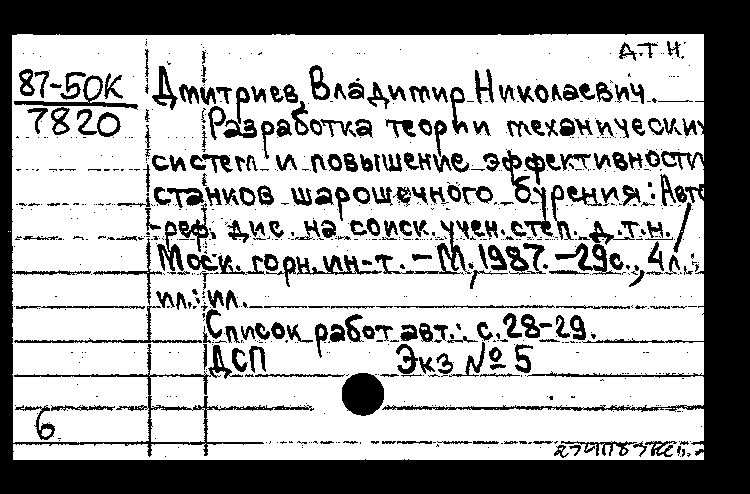 Д.Т.Н.
87-50К
7820
Дмитриев, Владимир Николаевич.
Разработка теории механических
систем и повышение эффективности
станков шарошечного бурения: Авто
-реф. дис. на соиск. учен. степ. д.т.н. /
Моск. горн. ин-т. - М., 1987. - 29с., 4 л.:
ил.: ил.
Список работ авт.: с. 28-29.
ДСП Экз № 5
6